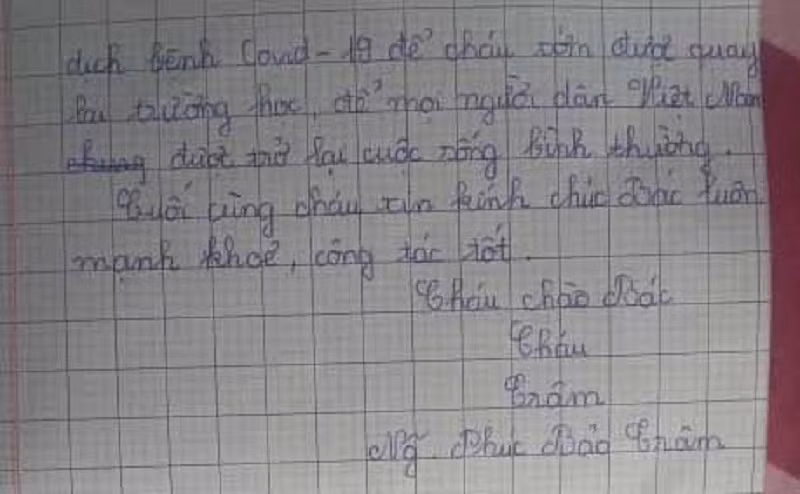 dịch bệnh Covid-19 để cháu sớm được quay
lại trường học, để mọi người dân Việt Nam
được trở lại cuộc sống bình thường.
Cuối cùng cháu xin kính chúc Bác luôn
mạnh khoẻ, công tác tốt.
Cháu chào Bác
Cháu
Trâm
Ng. Phúc Bảo Trâm